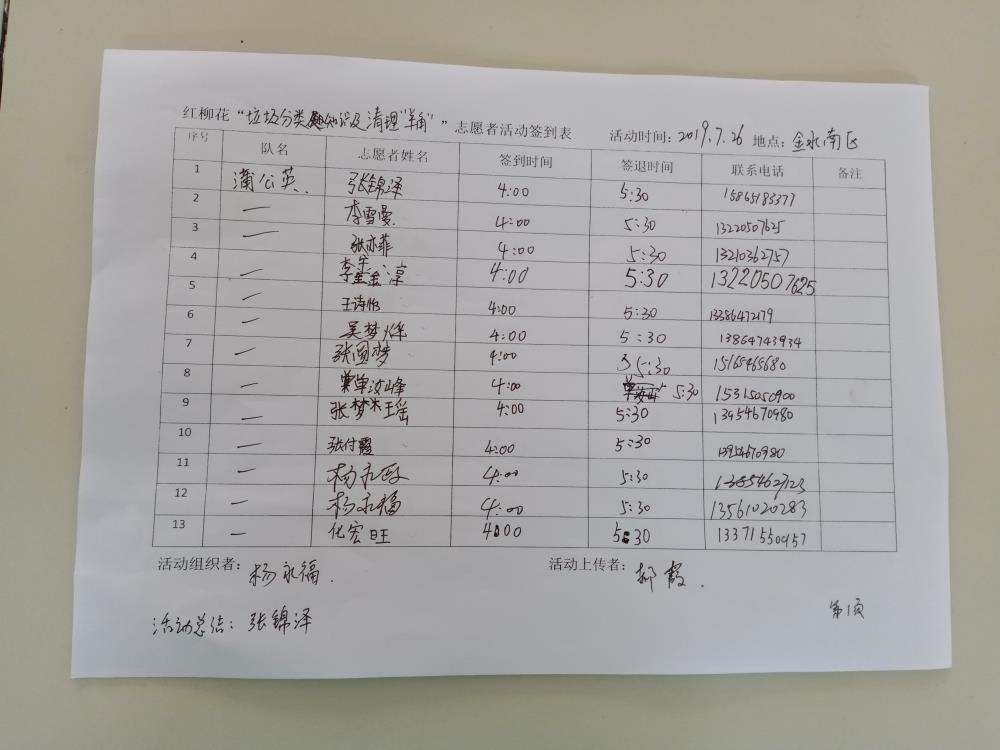 红柳花“垃圾分类知识及清理“羊角””志愿者活动签到表 活动时间：2019.7.26 地点：金水南区
序号 队名 志愿者姓名 签到时间 签退时间 联系电话 备注
1 蒲公英 张锦泽 4:00 5:30 15865183377
2 — 李雪曼 4:00 5:30 13220507625
3 — 张亦菲 4:00 5:30 13210362757
4 — 李金淳 4:00 5:30 13220507625
5 — 王诗怡 4:00 5:30 13386472179
6 — 吴梦烨 4:00 5:30 13864743934
7 — 张圆梦 4:00 5:30 15165465680
8 — 单汝峰 4:00 5:30 15315050900
9 — 张梦瑶 4:00 5:30 13954670980
10 — 张付霞 4:00 5:30 13954670980
11 — 杨永政 4:00 5:30
12 — 杨永福 4:00 5:30 13561020283
13 — 化宏旺 4:00 5:30 13371550957
活动组织者：杨永福. 活动上传者：郝霞.
活动总结：张锦泽
第1页